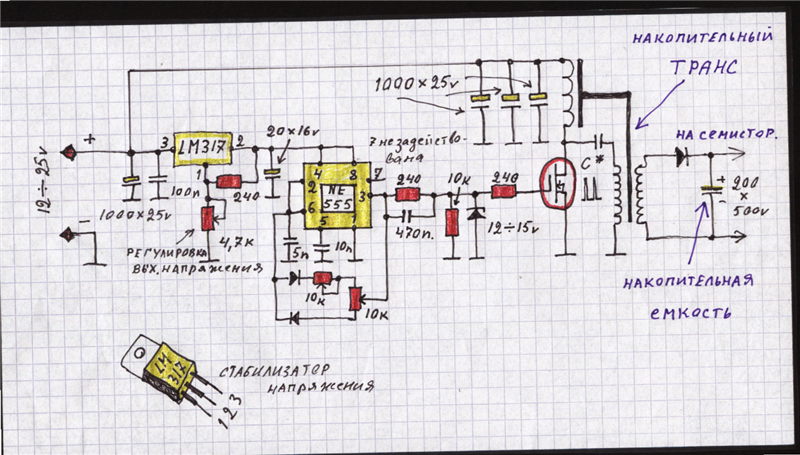 НАКОПИТЕЛЬНЫЙ
ТРАНС
1000×25v
20×16v
7 незадейство-
вана
НА СЕМИСТОР.
+
3
LM317
2
1
12÷25v
-
1000×25v
100п
240
4,7к
РЕГУЛИРОВКА
ВЫХ. НАПРЯЖЕНИЯ
4
8
7
2
NE
555
3
6
5
1
5п
10п
10к
10к
240
470п.
10к
12÷15v
240
C*
+
-
200
×
500v
НАКОПИТЕЛЬНАЯ
ЕМКОСТЬ
LM
317
СТАБИЛИЗАТОР
НАПРЯЖЕНИЯ
1 2 3